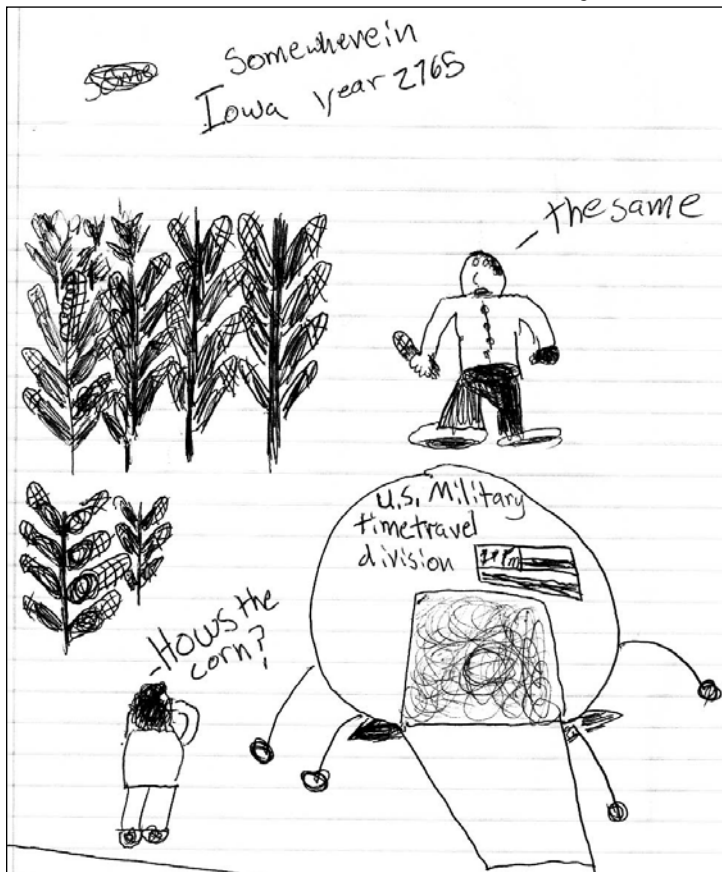 Somewhere in
Iowa year 2765
the same
U.S. Military
timetravel
division
Hows the
corn?